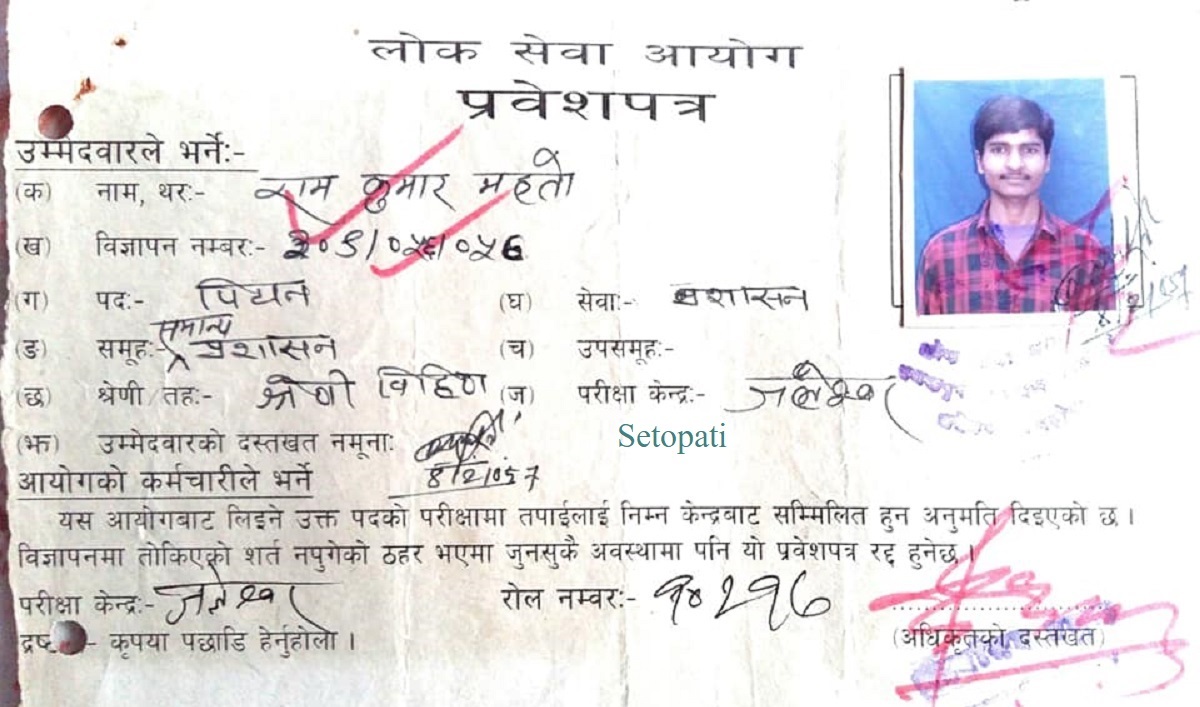 लोक सेवा आयोग
प्रवेशपत्र
उम्मेदवारले भर्ने:-
(क) नाम, थर:- राम कुमार महतो
(ख) विज्ञापन नम्बर:-
(ग) पद:- पियन (घ) सेवा:- प्रशासन
(ङ) समूह:- सामान्य प्रशासन (च) उपसमूह:-
(छ) श्रेणी/तह:- श्रेणी विहिण (ज) परीक्षा केन्द्र:- जलेश्वर
(झ) उम्मेदवारको दस्तखत नमूना:
8/2/057
Setopati
आयोगको कर्मचारीले भर्ने
यस आयोगबाट लिइने उक्त पदको परीक्षामा तपाईलाई निम्न केन्द्रबाट सम्मिलित हुन अनुमति दिइएको छ ।
विज्ञापनमा तोकिएको शर्त नपुगेको ठहर भएमा जुनसुकै अवस्थामा पनि यो प्रवेशपत्र रद्द हुनेछ ।
परीक्षा केन्द्र:- जलेश्वर रोल नम्बर:-
(अधिकृतको दस्तखत)
कृपया पछाडि हेर्नुहोला ।